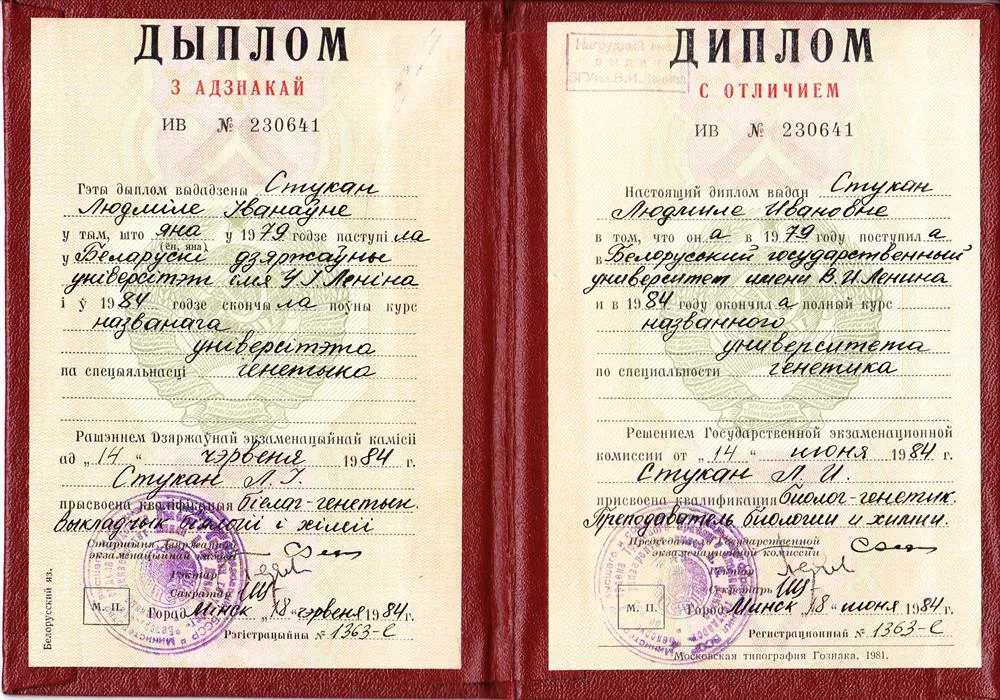 ДЫПЛОМ
З АДЗНАКАЙ
ИВ № 230641
Гэты дыплом выдадзены Стукан
Людміле Іванаўне
у тым, што яна у 1979 годзе паступіла
(ён, яна)
у Беларускі дзяржаўны
універсітэт імя У.І.Леніна
і ў 1984 годзе скончыла поўны курс
названага
універсітэта
па спецыяльнасці генетыка
Рашэннем Дзяржаўнай экзаменацыйнай камісіі
ад „14“ чэрвеня 1984 г.
Стукан Л.І.
прысвоена кваліфікацыя біёлаг-генетык.
Выкладчык біялогіі і хіміі
Старшыня Дзяржаўнай
экзаменацыйнай камісіі
Рэктар
Сакратар
М. П.
Горад Мінск „18“ чэрвеня 1984 г.
Рэгістрацыйны № 1363-С
Белорусский яз.
Нагрудный знак
выдан
БГУ им. В.И. Ленина
ДИПЛОМ
С ОТЛИЧИЕМ
ИВ № 230641
Настоящий диплом выдан Стукан
Людмиле Ивановне
в том, что она в 1979 году поступила
в Белорусский государственный
университет имени В.И.Ленина
и в 1984 году окончила полный курс
названного
университета
по специальности генетика
Решением Государственной экзаменационной
комиссии от „14“ июня 1984 г.
Стукан Л. И.
присвоена квалификация биолог-генетик.
Преподаватель биологии и химии.
Председатель Государственной
экзаменационной комиссии
Ректор
Секретарь
М. П.
Город Минск „18“ июня 1984 г.
Регистрационный № 1363-С
Московская типография Гознака. 1981.